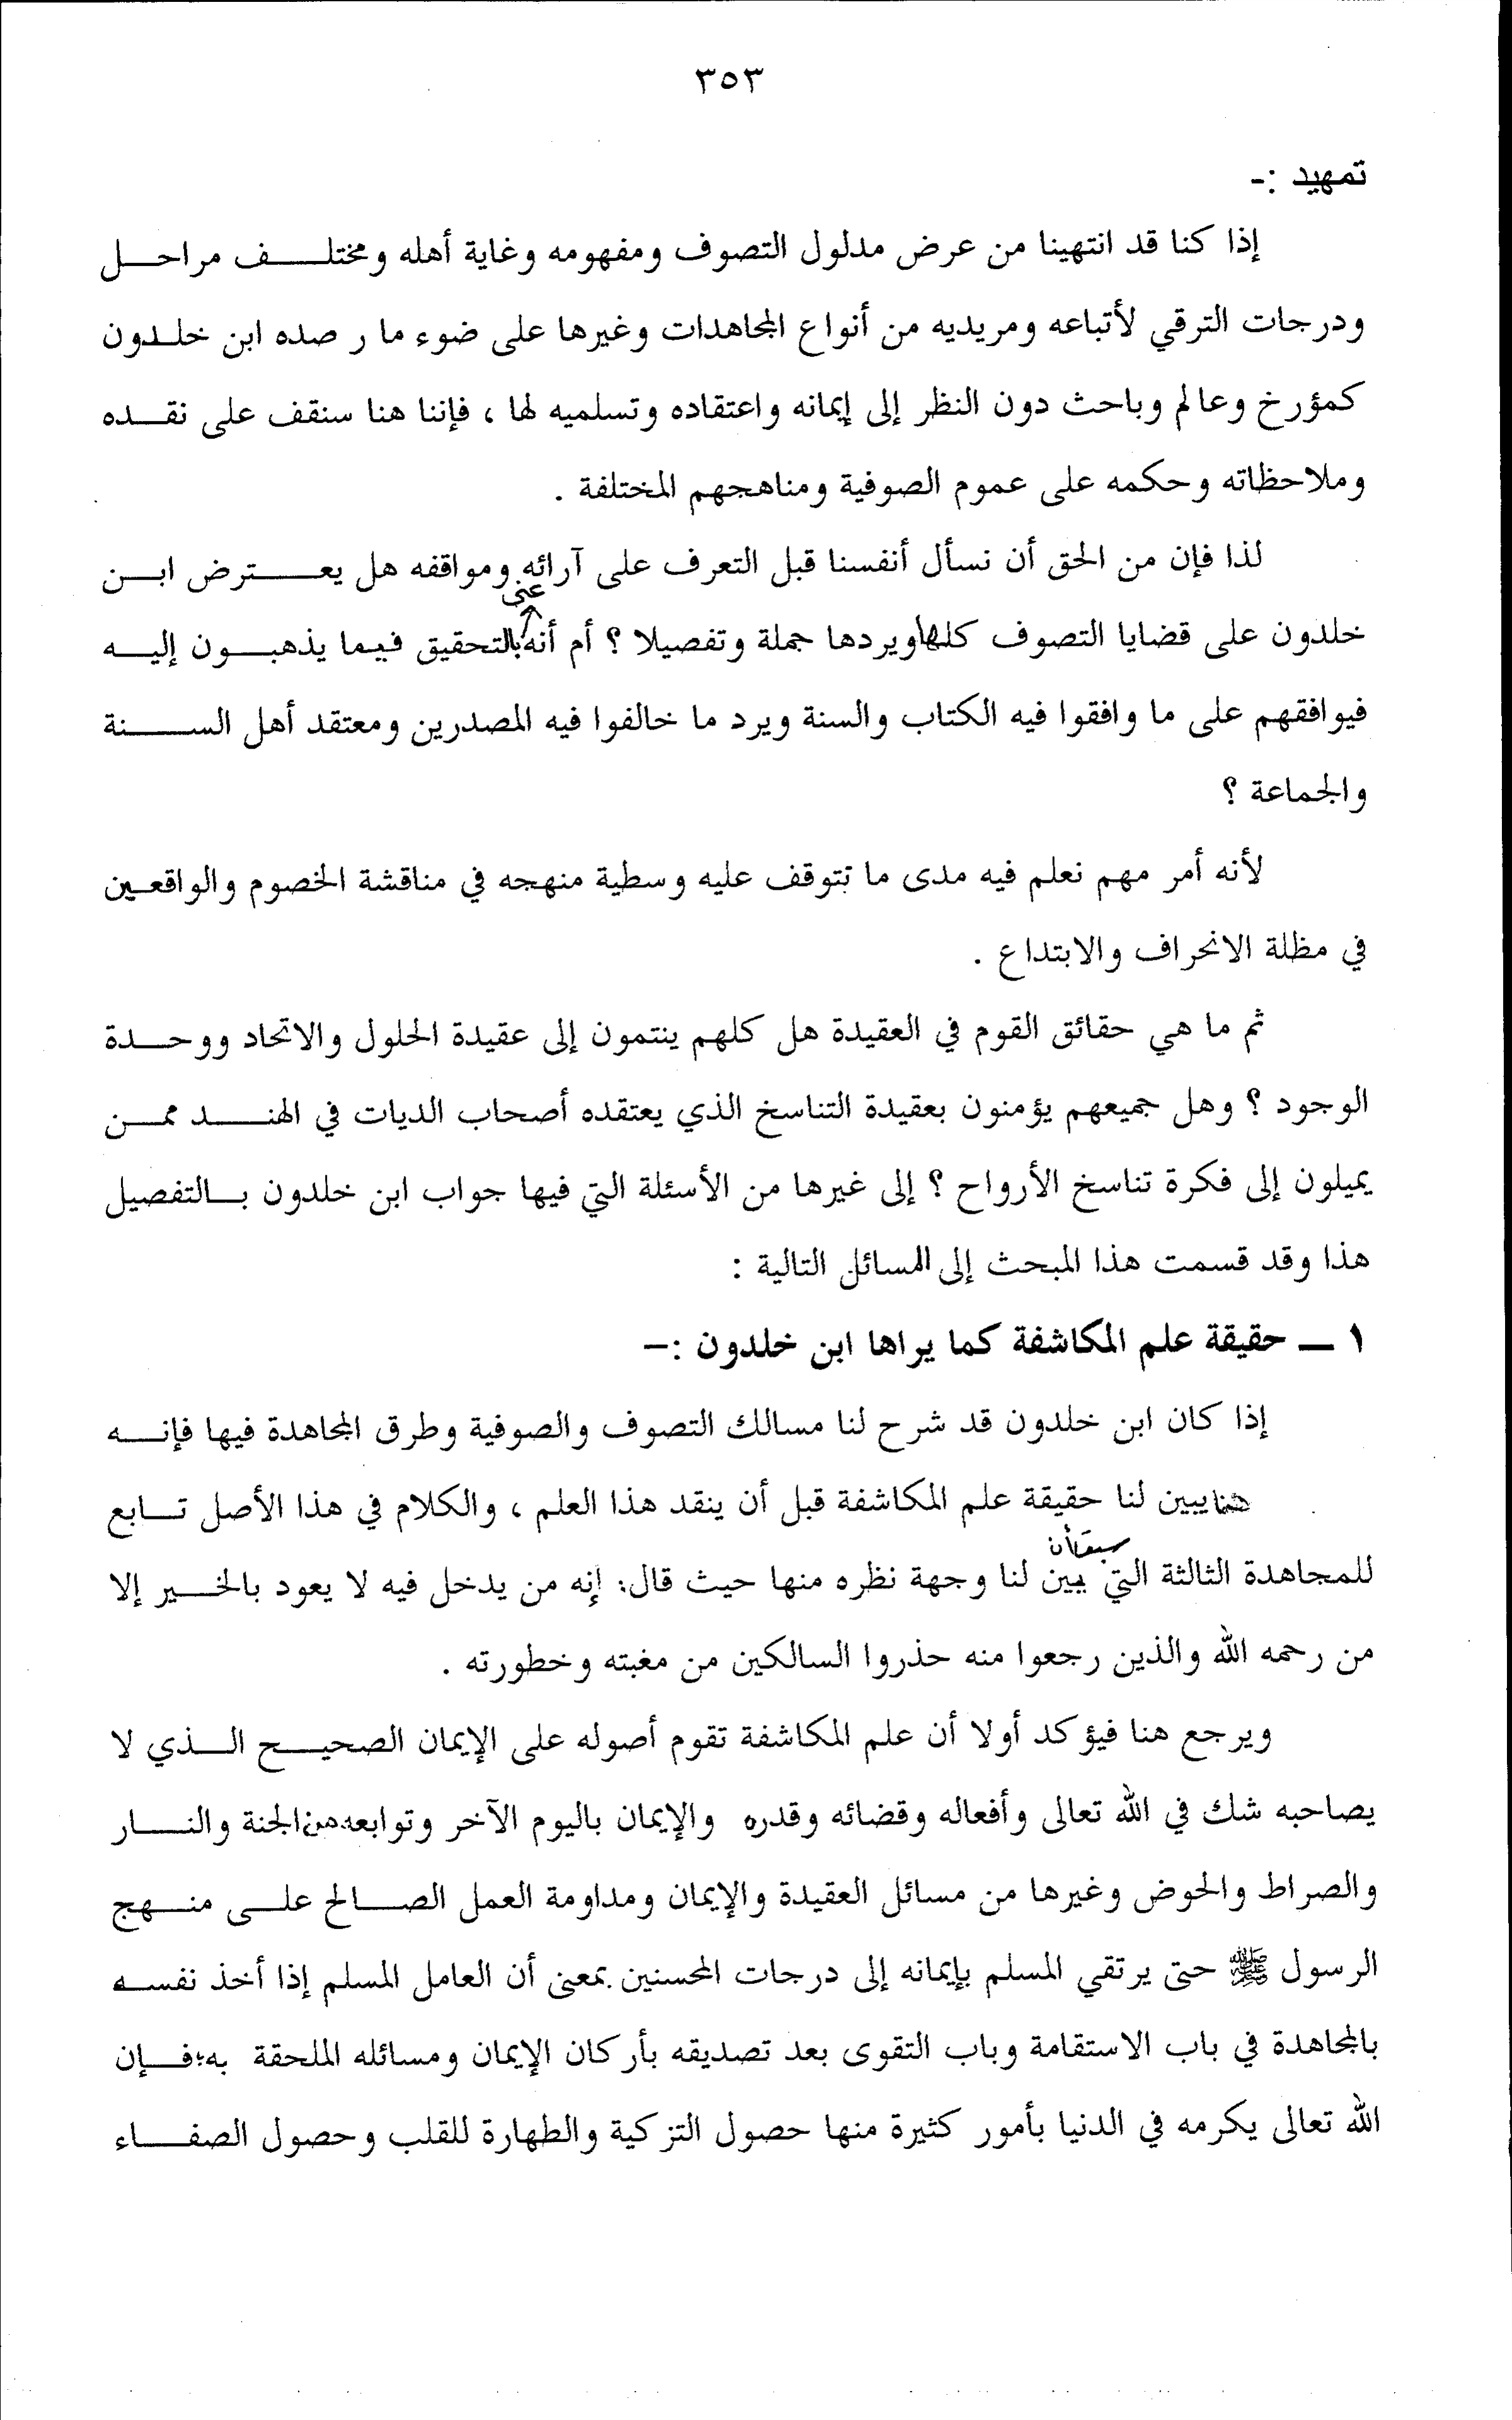 ٣٥٣
تمهيد :-
إذا كنا قد انتهينا من عرض مدلول التصوف ومفهومه وغاية أهله ومختلف مراحل
ودرجات الترقي لأتباعه ومريديه من أنواع المجاهدات وغيرها على ضوء ما رصده ابن خلدون
كمؤرخ وعالم وباحث دون النظر إلى إيمانه واعتقاده وتسلميه لها ، فإننا هنا سنقف على نقده
وملاحظاته وحكمه على عموم الصوفية ومناهجهم المختلفة .
لذا فإن من الحق أن نسأل أنفسنا قبل التعرف على آرائه ومواقفه هل يعترض ابن
خلدون على قضايا التصوف كلها ويردها جملة وتفصيلا ؟ أم أنه عني بالتحقيق فيما يذهبون إليه
فيوافقهم على ما وافقوا فيه الكتاب والسنة ويرد ما خالفوا فيه المصدرين ومعتقد أهل السنة
والجماعة ؟
لأنه أمر مهم نعلم فيه مدى ما تتوقف عليه وسطية منهجه في مناقشة الخصوم والواقعين
في مظلة الانحراف والابتداع .
ثم ما هي حقائق القوم في العقيدة هل كلهم ينتمون إلى عقيدة الحلول والاتحاد ووحدة
الوجود ؟ وهل جميعهم يؤمنون بعقيدة التناسخ الذي يعتقده أصحاب الديات في الهند ممن
يميلون إلى فكرة تناسخ الأرواح ؟ إلى غيرها من الأسئلة التي فيها جواب ابن خلدون بالتفصيل
هذا وقد قسمت هذا المبحث إلى المسائل التالية :
١ ـ حقيقة علم المكاشفة كما يراها ابن خلدون :ـ
إذا كان ابن خلدون قد شرح لنا مسالك التصوف والصوفية وطرق المجاهدة فيها فإنه
هنا يبين لنا حقيقة علم المكاشفة قبل أن ينقد هذا العلم ، والكلام في هذا الأصل تابع
للمجاهدة الثالثة التي سبق أن بين لنا وجهة نظره منها حيث قال: إنه من يدخل فيه لا يعود بالخير إلا
من رحمه الله والذين رجعوا منه حذروا السالكين من مغبته وخطورته .
ويرجع هنا فيؤكد أولا أن علم المكاشفة تقوم أصوله على الإيمان الصحيح الذي لا
يصاحبه شك في الله تعالى وأفعاله وقضائه وقدره والإيمان باليوم الآخر وتوابعه من الجنة والنار
والصراط والحوض وغيرها من مسائل العقيدة والإيمان ومداومة العمل الصالح على منهج
الرسول ﷺ حتى يرتقي المسلم بإيمانه إلى درجات المحسنين بمعنى أن العامل المسلم إذا أخذ نفسه
بالمجاهدة في باب الاستقامة وباب التقوى بعد تصديقه بأركان الإيمان ومسائله الملحقة به؛ فإن
الله تعالى يكرمه في الدنيا بأمور كثيرة منها حصول التزكية والطهارة للقلب وحصول الصفاء